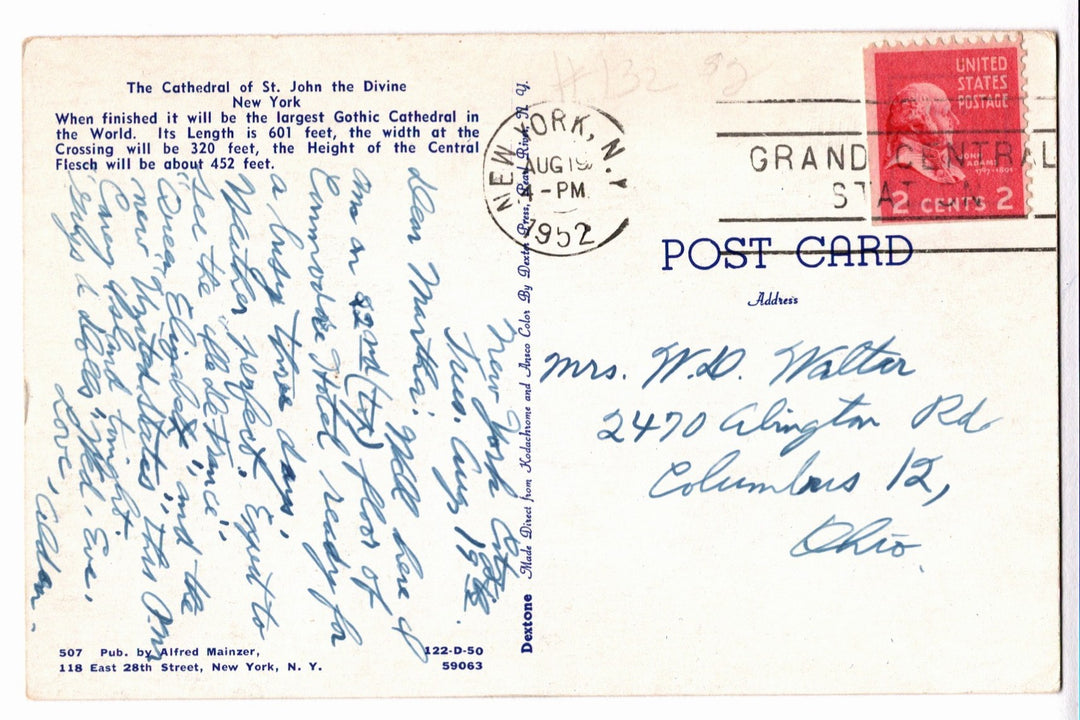 The Cathedral of St. John the Divine
New York
When finished it will be the largest Gothic Cathedral in
the World. Its Length is 601 feet, the width at the
Crossing will be 320 feet, the Height of the Central
Flesch will be about 452 feet.
New York City,
Tues. Aug 19th
1952.
Dear Martha: Well here I
am on 22nd (too) floor of
Commodore Hotel, ready for
a busy three days.
Weather perfect. Expect to
see the "Ile de France",
"Queen Elizabeth", and the
new "United States", this P.M.
Coney Island tonight
"Guys & dolls", Wed. Eve.
Love, Alden.
507 Pub. by Alfred Mainzer,
118 East 28th Street, New York, N. Y.
122-D-50
59063
Dextone Made Direct from Kodachrome and Ansco Color By Dexter Press, Pearl River, N. Y.
#132
NEW YORK, N.Y.
AUG 19
-PM
1952
GRAND CENTRAL
STATION
UNITED
STATES
POSTAGE
JOHN
ADAMS
1797-1801
2 CENTS 2
POST CARD
Address
Mrs. W.D. Walter
2470 Abington Rd
Columbus 12,
Ohio.